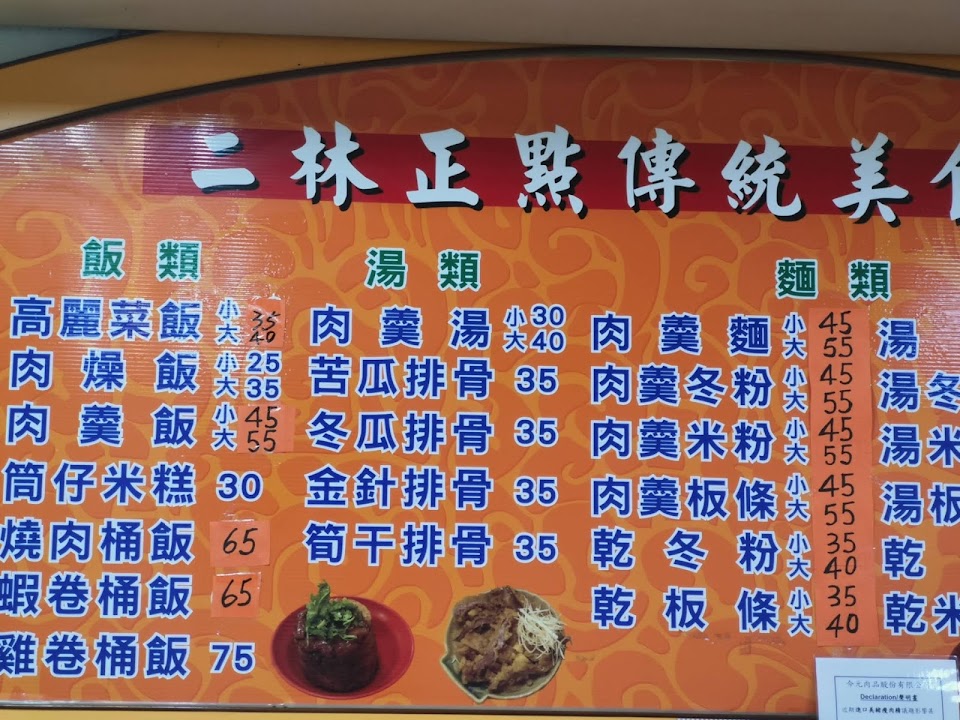 二林正點傳統美
飯類
高麗菜飯 小 35 大 40
肉燥飯 小 25 大 35
肉羹飯 小 45 大 55
筒仔米糕 30
燒肉桶飯 65
蝦卷桶飯 65
雞卷桶飯 75
湯類
肉羹湯 小 30 大 40
苦瓜排骨 35
冬瓜排骨 35
金針排骨 35
筍干排骨 35
麵類
肉羹麵 小 45 大 55
肉羹冬粉 小 45 大 55
肉羹米粉 小 45 大 55
肉羹板條 小 45 大 55
乾冬粉 小 35 大 40
乾板條 小 35 大 40
湯
湯冬
湯米
湯板
乾
乾米
今元肉品股份有限
Declaration/聲明書